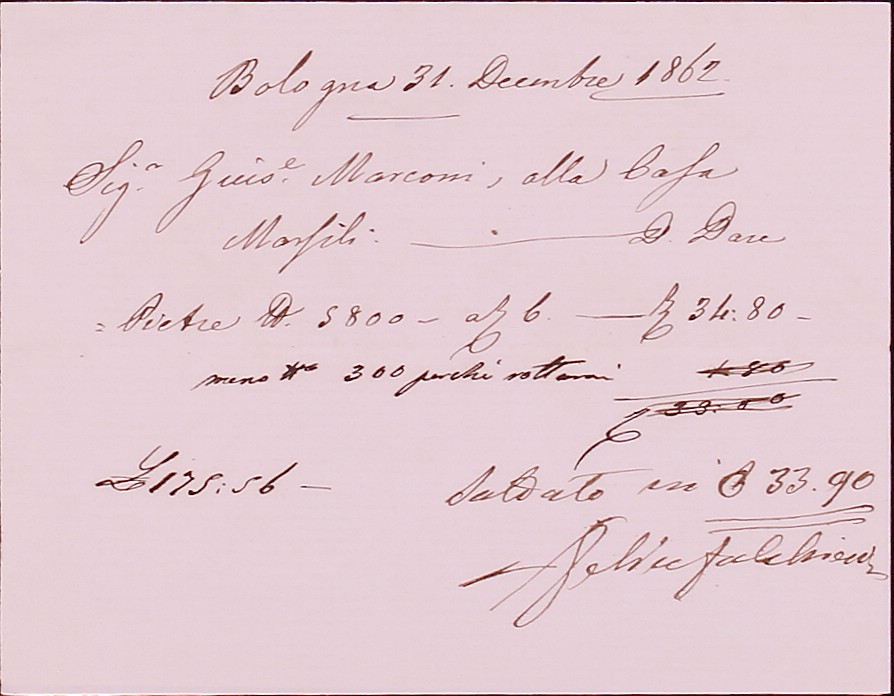 Bologna 31. Decembre 1862.
Sig.r Guis.e Marconi, alla Casa
Marsili. D. Dare
= Pietre N. 5800 - a £ 6. — £ 34:80 -
meno N.o 300 perchè rottami 1 80
£ 33:00
£ 175:56 — Saldato in £ 33.90
Felice